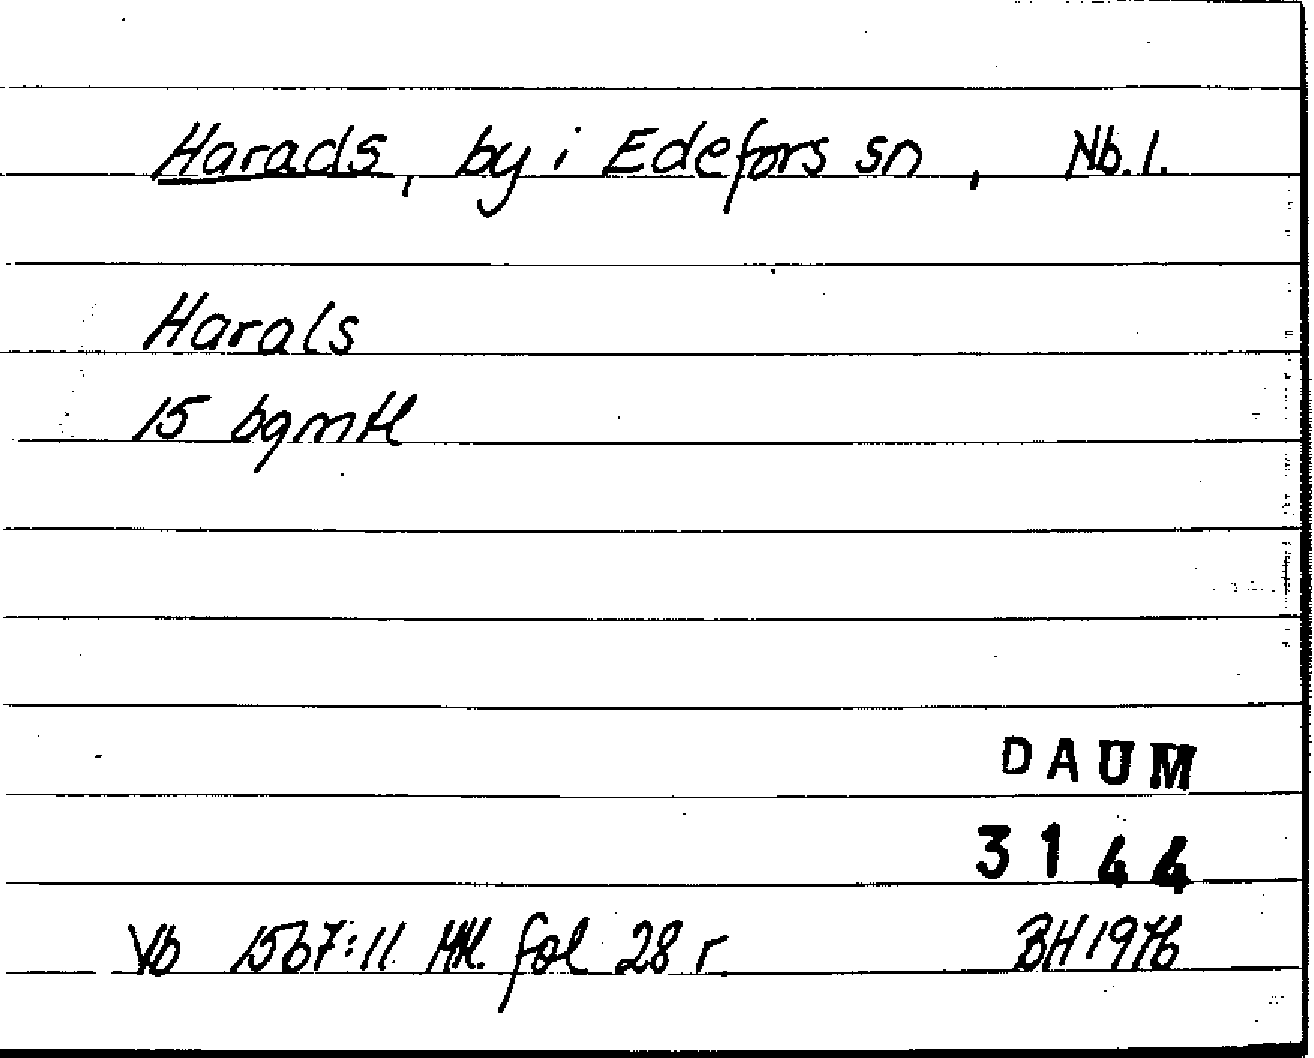 Harads, by i Edefors sn, Nb.l.
Harals
15 bgmtl
DAUM
3144
Vb 1567:11 HH. fol 28 r. BH 1976